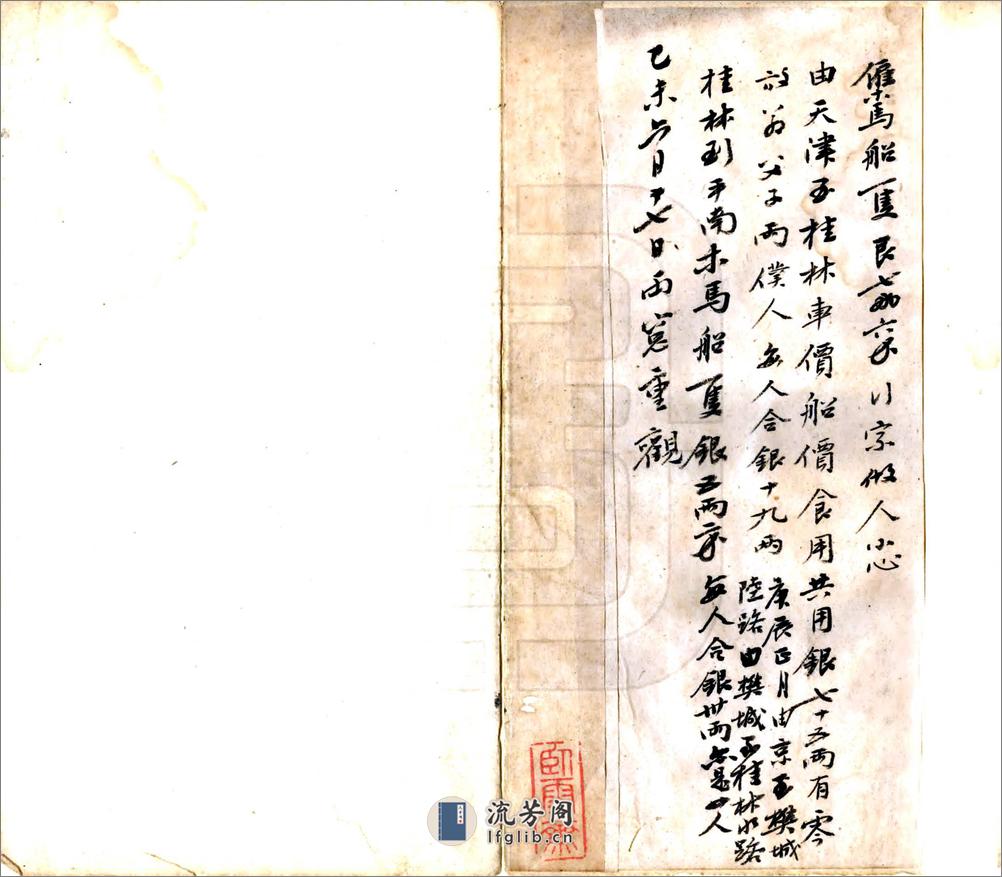 僱馬船一隻艮七両六錢行宗做人小心
由天津至桂林車價船價食用共用銀七十五兩有零
韵翁父子兩僕人每人合銀十九兩
庚辰正月由京至樊城
陸路由樊城至桂林水路
每人合銀卅兩亦是四人
桂林到平南木馬船一隻銀五兩
己未六月十七日雨窓重觀
流芳阁
lfglib.cn